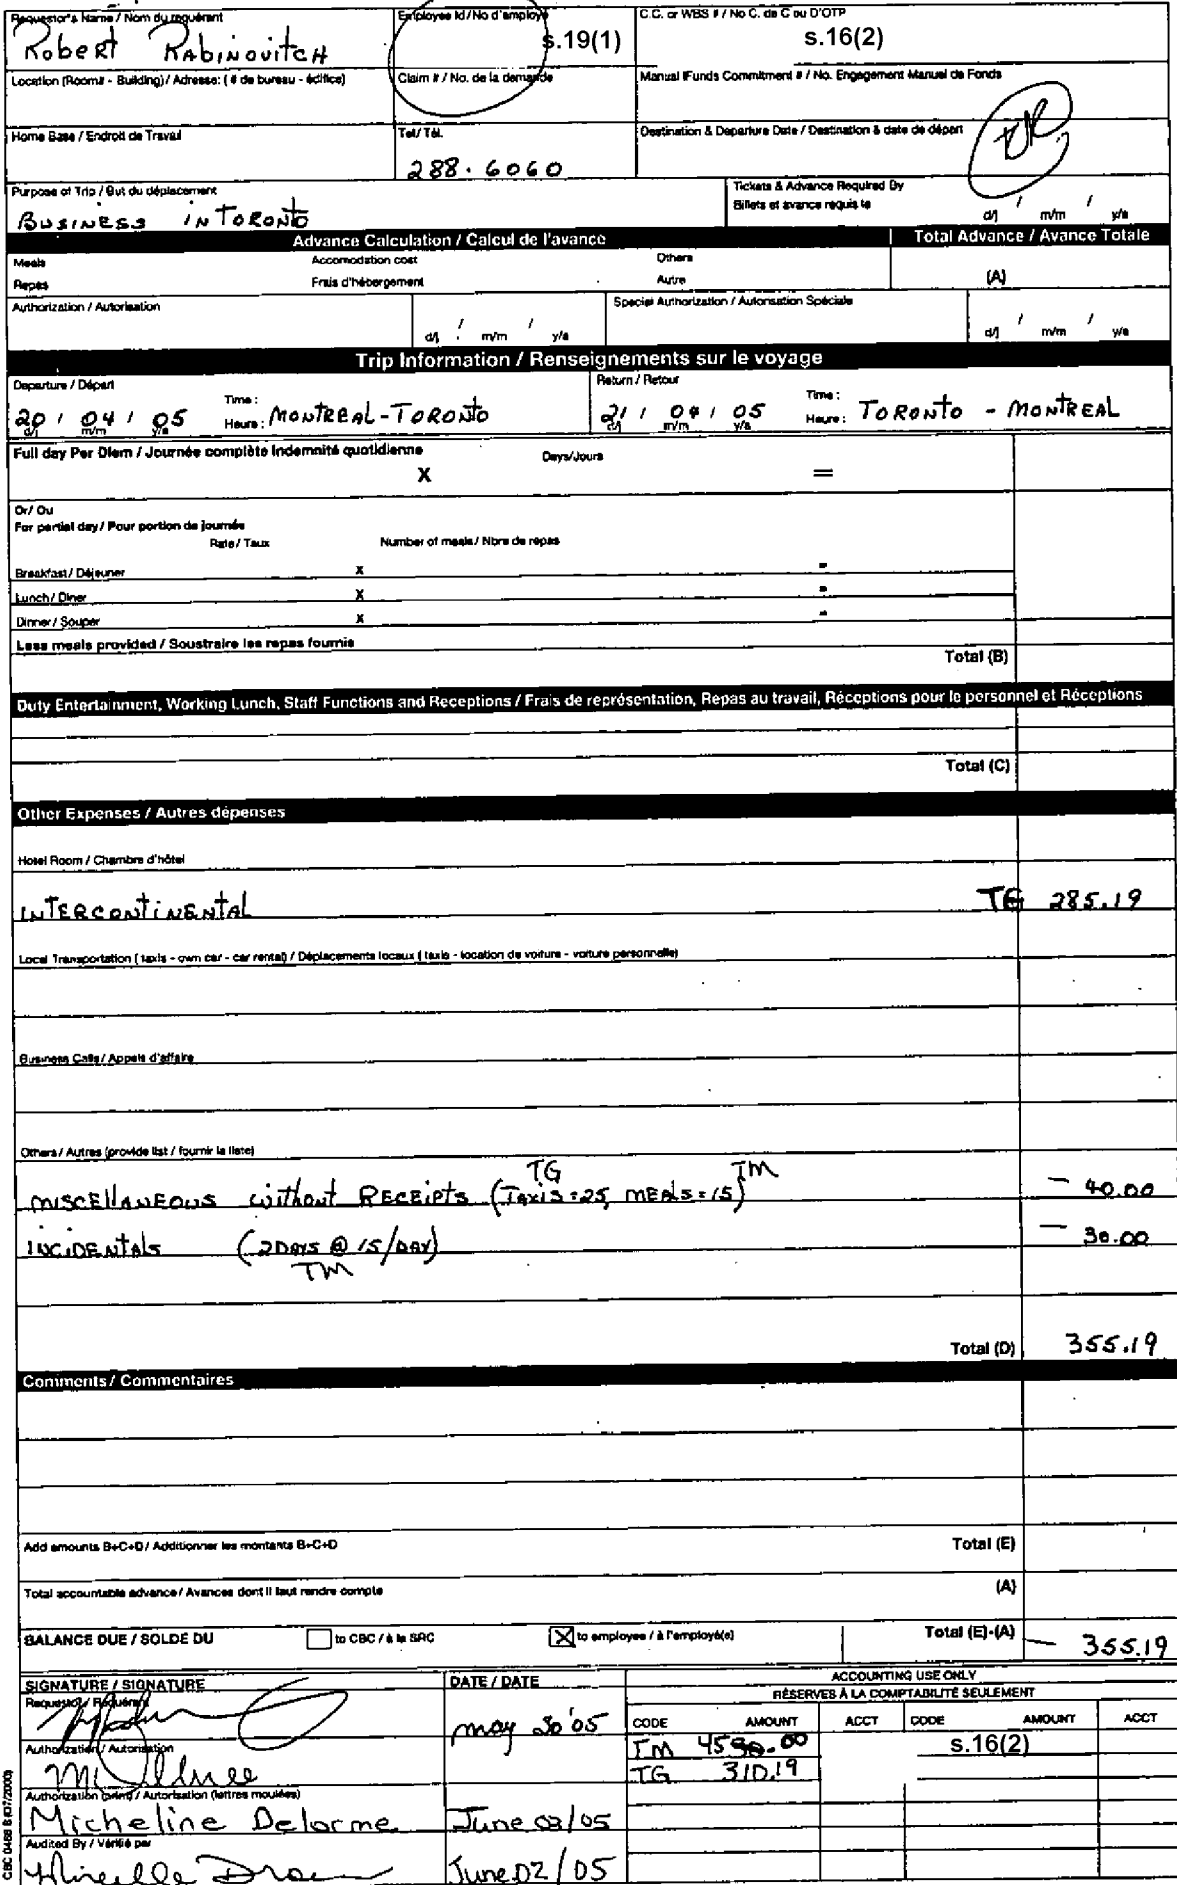 Requestor's Name / Nom du requérant
Robert Rabinovitch
Employee Id / No d'employé
s.19(1)
C.C. or WBS # / No C. de C ou D'OTP
s.16(2)
Location (Rooms - Building) / Adresse: ( # de bureau - édifice)
Claim # / No. de la demande
Manual Funds Commitment # / No. Engagement Manuel de Fonds
Home Base / Endroit de Travail
Tel / Tél.
288.6060
Destination & Departure Date / Destination & date de départ
Purpose of Trip / But du déplacement
BUSINESS IN TORONTO
Tickets & Advance Required By
Billets et avance requis le
d/j / m/m / y/a
Advance Calculation / Calcul de l'avance
Total Advance / Avance Totale
Meals
Repas
Accomodation cost
Frais d'hébergement
Others
Autre
(A)
Authorization / Autorisation
d/j / m/m / y/a
Special Authorization / Autorisation Spéciale
d/j / m/m / y/a
Trip Information / Renseignements sur le voyage
Departure / Départ
20 / 04 / 05
d/j m/m y/a
Time :
Heure : MONTREAL - TORONTO
Return / Retour
21 / 04 / 05
d/j m/m y/a
Time :
Heure : TORONTO - MONTREAL
Full day Per Diem / Journée complète Indemnité quotidienne
X
Days/Jours
=
Or / Ou
For partial day / Pour portion de journée
Rate / Taux
Number of meals / Nbre de repas
Breakfast / Déjeuner x =
Lunch / Diner x =
Dinner / Souper x =
Less meals provided / Soustraire les repas fournis
Total (B)
Duty Entertainment, Working Lunch, Staff Functions and Receptions / Frais de représentation, Repas au travail, Réceptions pour le personnel et Réceptions
Total (C)
Other Expenses / Autres dépenses
Hotel Room / Chambre d'hôtel
INTERCONTINENTAL TG 285.19
Local Transportation ( taxis - own car - car rental) / Déplacements locaux ( taxis - location de voiture - voiture personnelle)
Business Calls / Appels d'affaire
Others / Autres (provide list / fournir la liste)
TG TM
MISCELLANEOUS without RECEIPTS (TAXIS = 25, MEALS = 15) - 40.00
INCIDENTALS (2 DAYS @ 15/DAY) - 30.00
TM
Total (D) 355.19
Comments / Commentaires
Add amounts B+C+D / Additionner les montants B+C+D
Total (E)
Total accountable advance / Avances dont il faut rendre compte
(A)
BALANCE DUE / SOLDE DU
to CBC / à la SRC
X to employee / à l'employé(e)
Total (E)-(A)
- 355.19
SIGNATURE / SIGNATURE
DATE / DATE
ACCOUNTING USE ONLY
RÉSERVES À LA COMPTABILITÉ SEULEMENT
Requestor / Requérant
may 30 '05
CODE AMOUNT ACCT CODE AMOUNT ACCT
TM 45.00
s.16(2)
TG 310.19
Authorization / Autorisation
Authorization (print) / Autorisation (lettres moulées)
Micheline Delorme
June 02/05
Audited By / Vérifié par
June 02/05